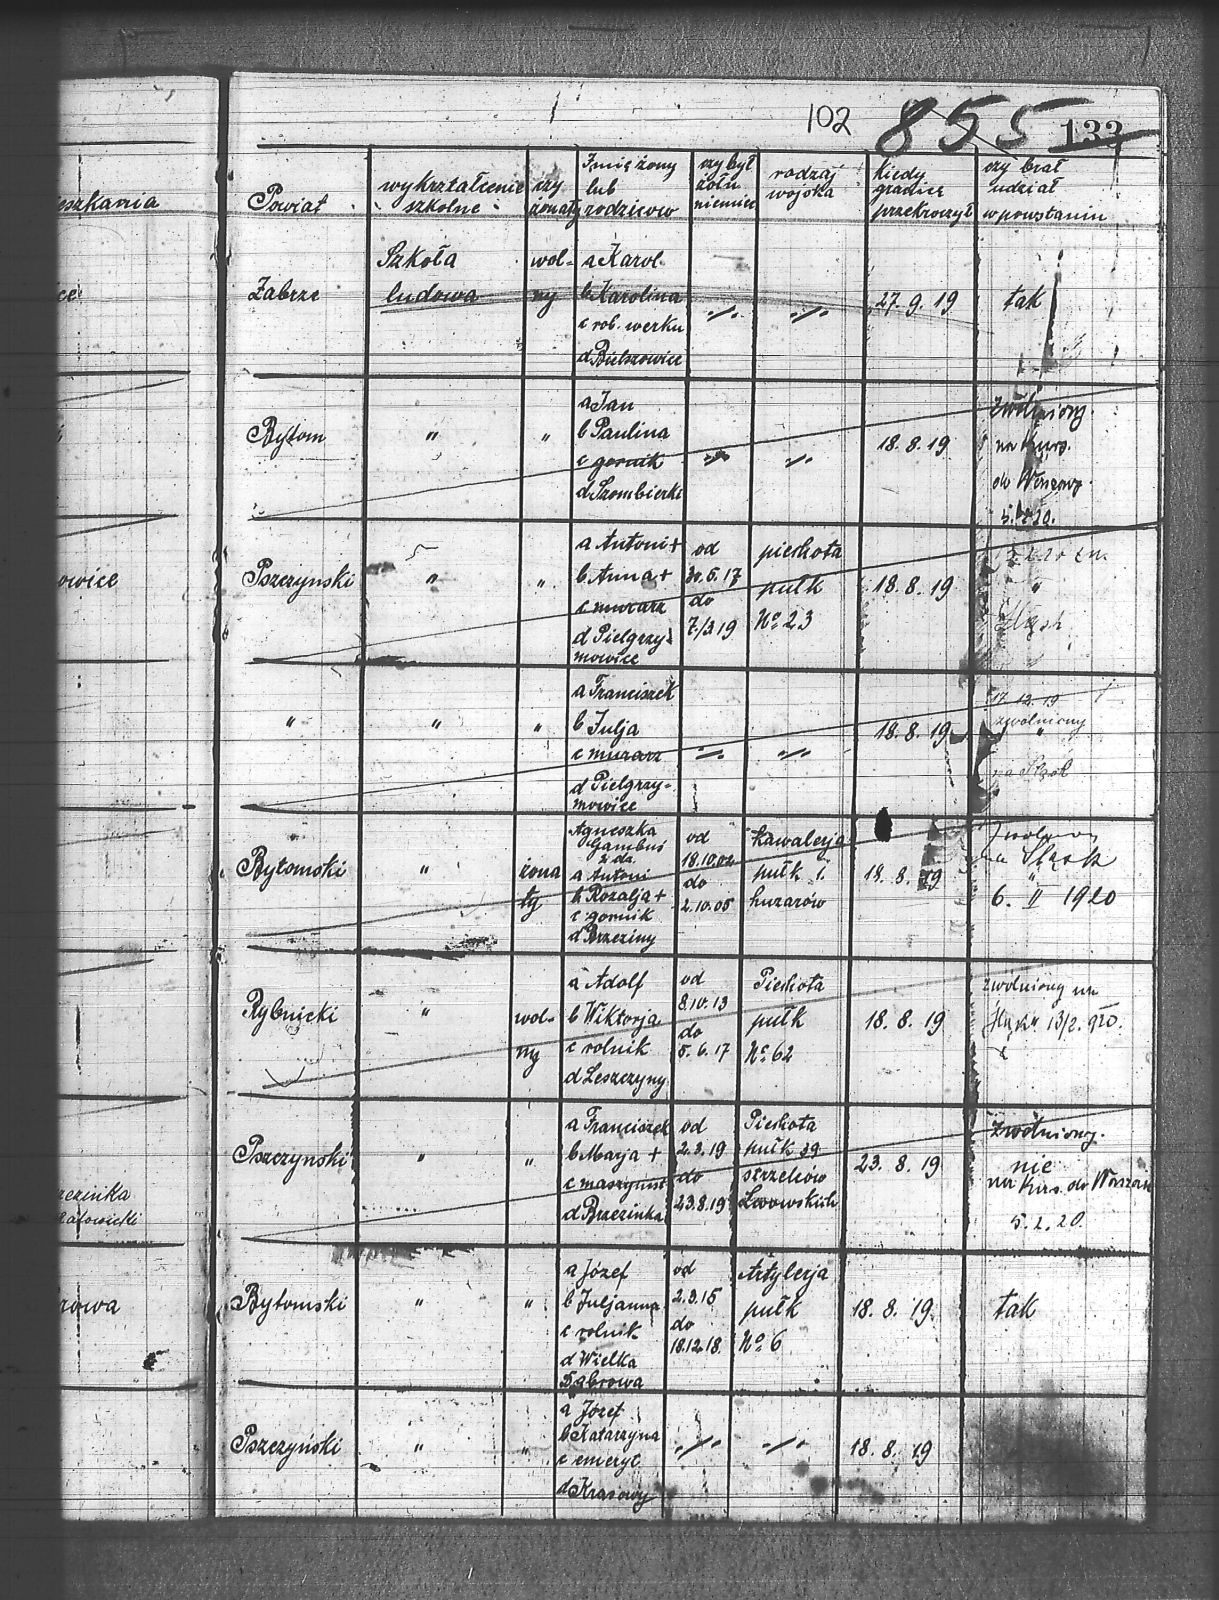 102 855 133
eszkania
Powiat
wykrztałcenie
szkolne
czy
żonaty
Imię żony
lub
rodziców
czy był
żołn
niemiec
rodzaj
wojska
kiedy
granicę
przekroczył
czy brał
udział
w powstaniu
ce
Zabrze
Szkoła
ludowa
wol-
ny
a Karol
b Karolina
c rob. werku
d Bielszowice
-//-
-//-
27. 9. 19
tak
Bytom
"
"
a Jan
b Paulina
c gornik
d Szombierki
-//-
-//-
18. 8. 19
zwolniony
na kurs.
do Warszawy
5.2.20.
owice
Pszczynski
"
"
a Antoni +
b Anna +
c murarz
d Pielgrzy-
mowice
od
30.5.17
do
7./3.19
piechota
pułk
No 23
18. 8. 19
"
"
"
"
a Franciszek
b Julja
c murarz
d Pielgrzy-
mowice
-//-
-//-
18. 8. 19
17.12.19
zwolniony
"
na Śląsk
Bytomski
"
żona
ty
Agnieszka
Gambuś
z dz.
a Antoni
b Rozalja +
c gornik
d Brzeziny
od
18.10.02
do
2.10.05
kawalerja
pułk 1.
huzarów
18. 8. 19
na Śląsk
"
6. II 1920
Rybnicki
"
wol-
ny
a Adolf
b Wiktorja
c rolnik
d Leszczyny
od
8.10.13
do
5. 6. 17
Piechota
pułk
No 62
18. 8. 19
zwolniony na
Śląsk 13/2. 920.
rezinka
Katowicki
Pszczynski
"
"
a Franciszek
b Marja +
c maszynist
d Brzezinka
od
2.3.19
do
23.8.19
Piechota
pułk 39
strzelców
Lwowskich
23. 8. 19
zwolniony.
nie
na kurs. do Warszaw
5. 2. 20
rowa
Bytomski
"
"
a Józef
b Juljanna
c rolnik
d Wielka
Dąbrowa
od
2.3.15
do
18.12.18.
Artylerja
pułk
No 6
18. 8. 19.
tak
Pszczyński
"
"
a Józef
b Katarzyna
c emeryt
d Krasowy
-//-
-//-
18. 8. 19